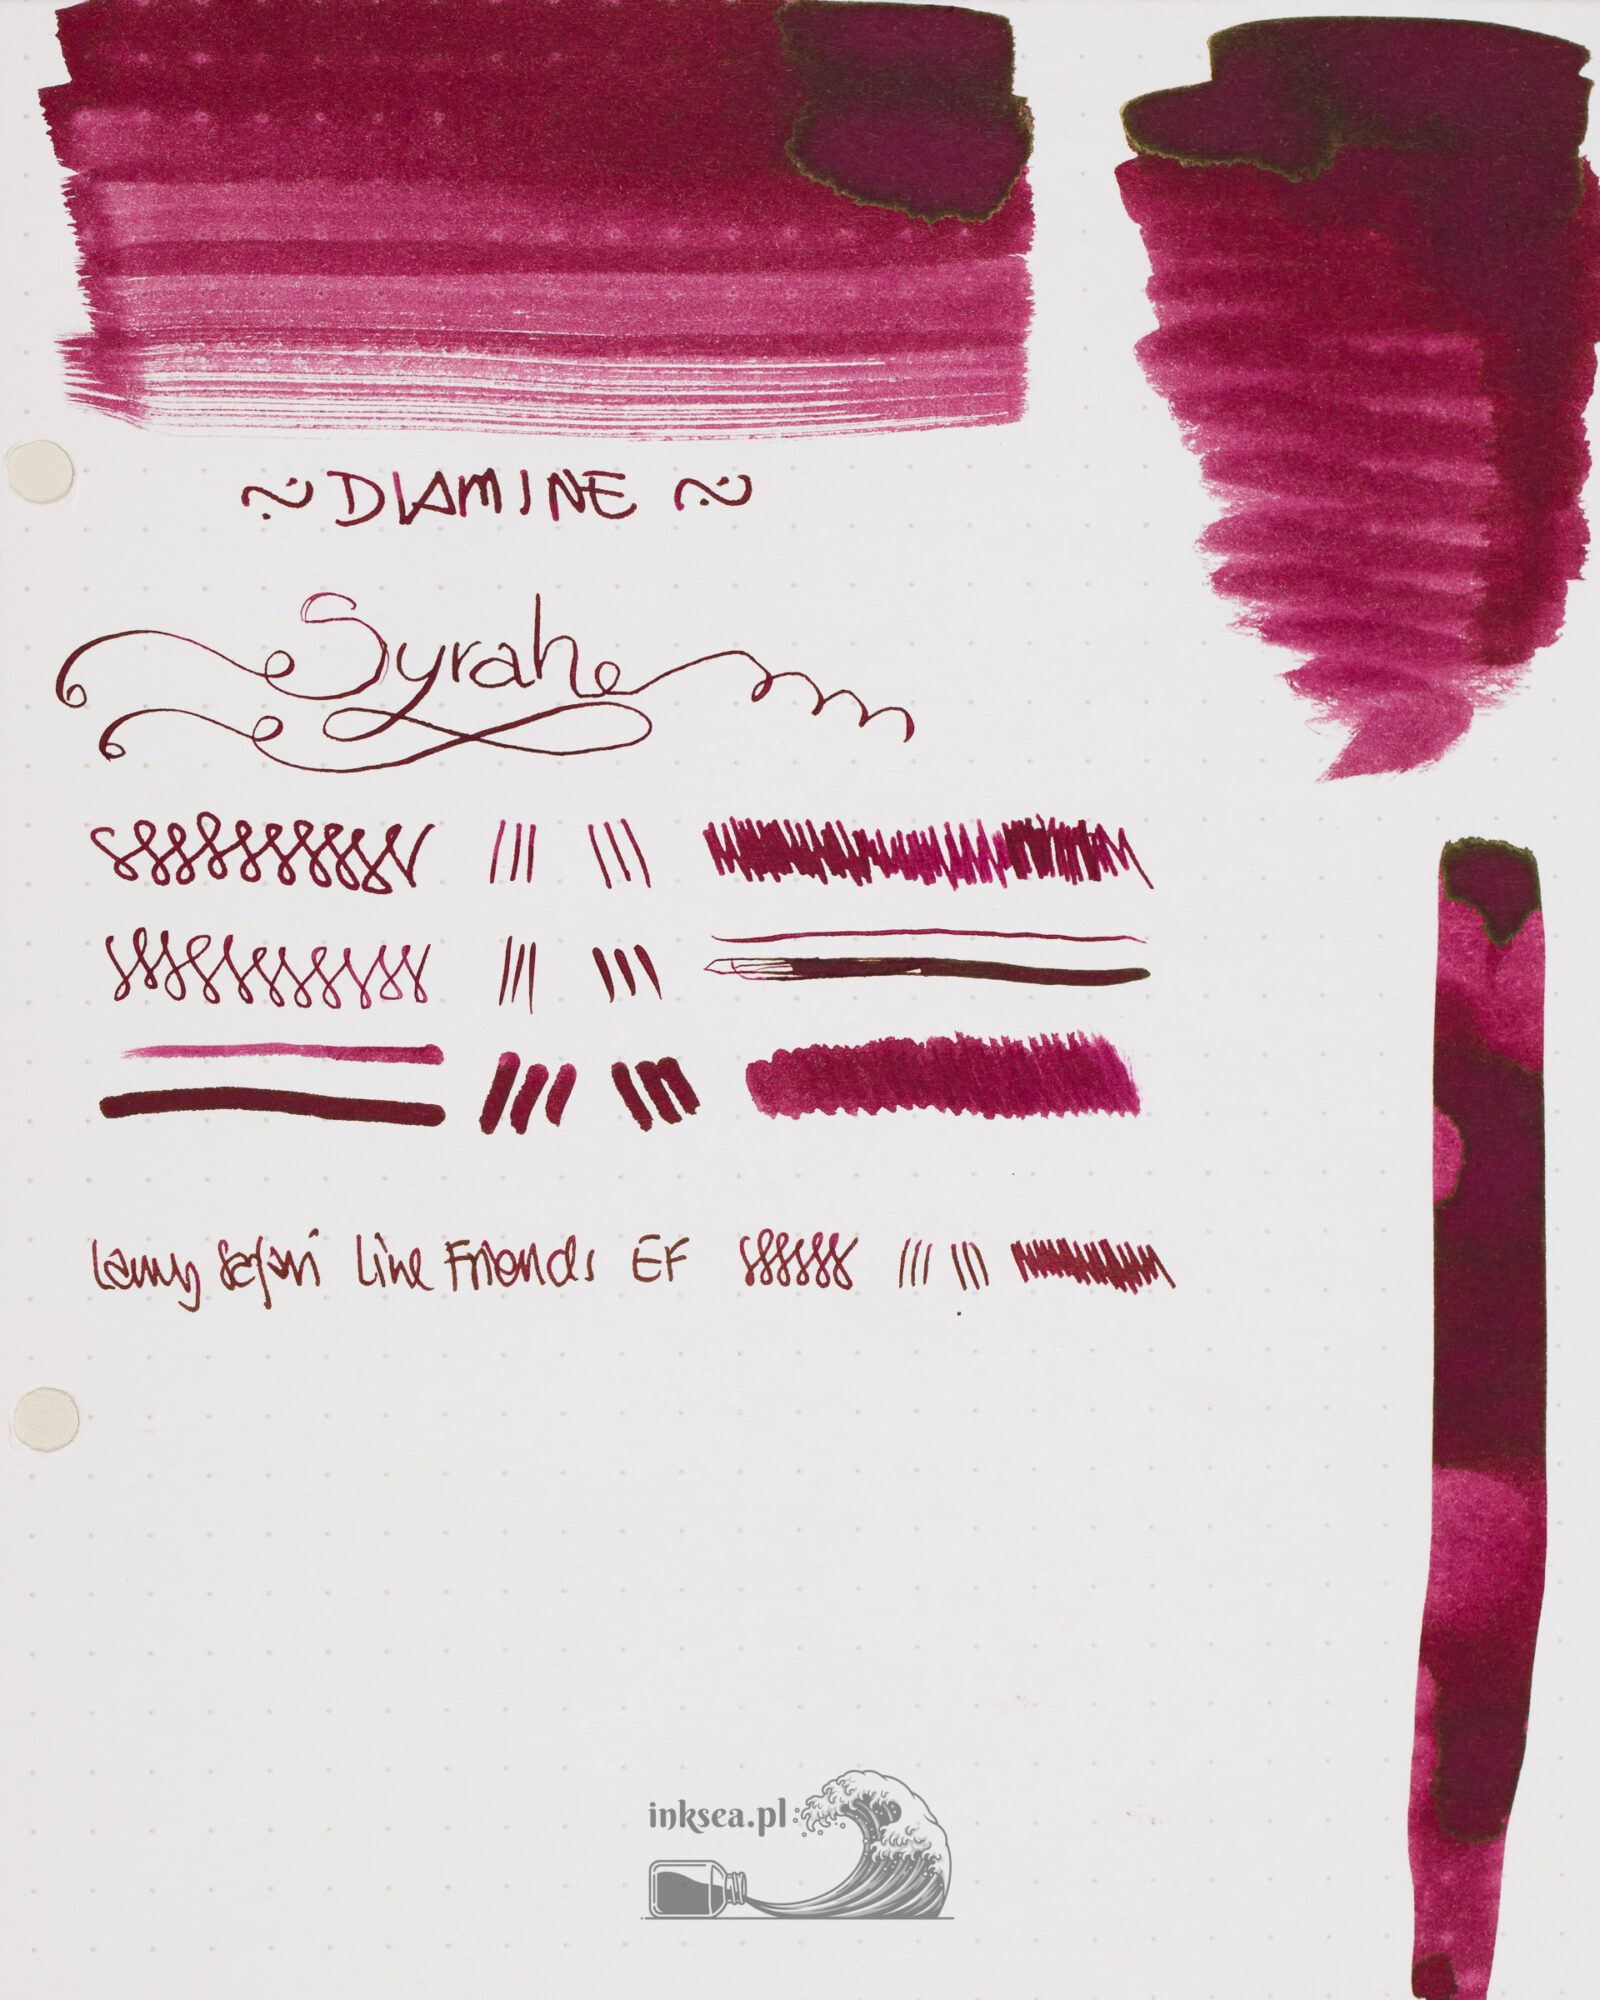 ~ DIAMINE ~
Syrah
Lamy Safari Line Friends EF
inksea.pl